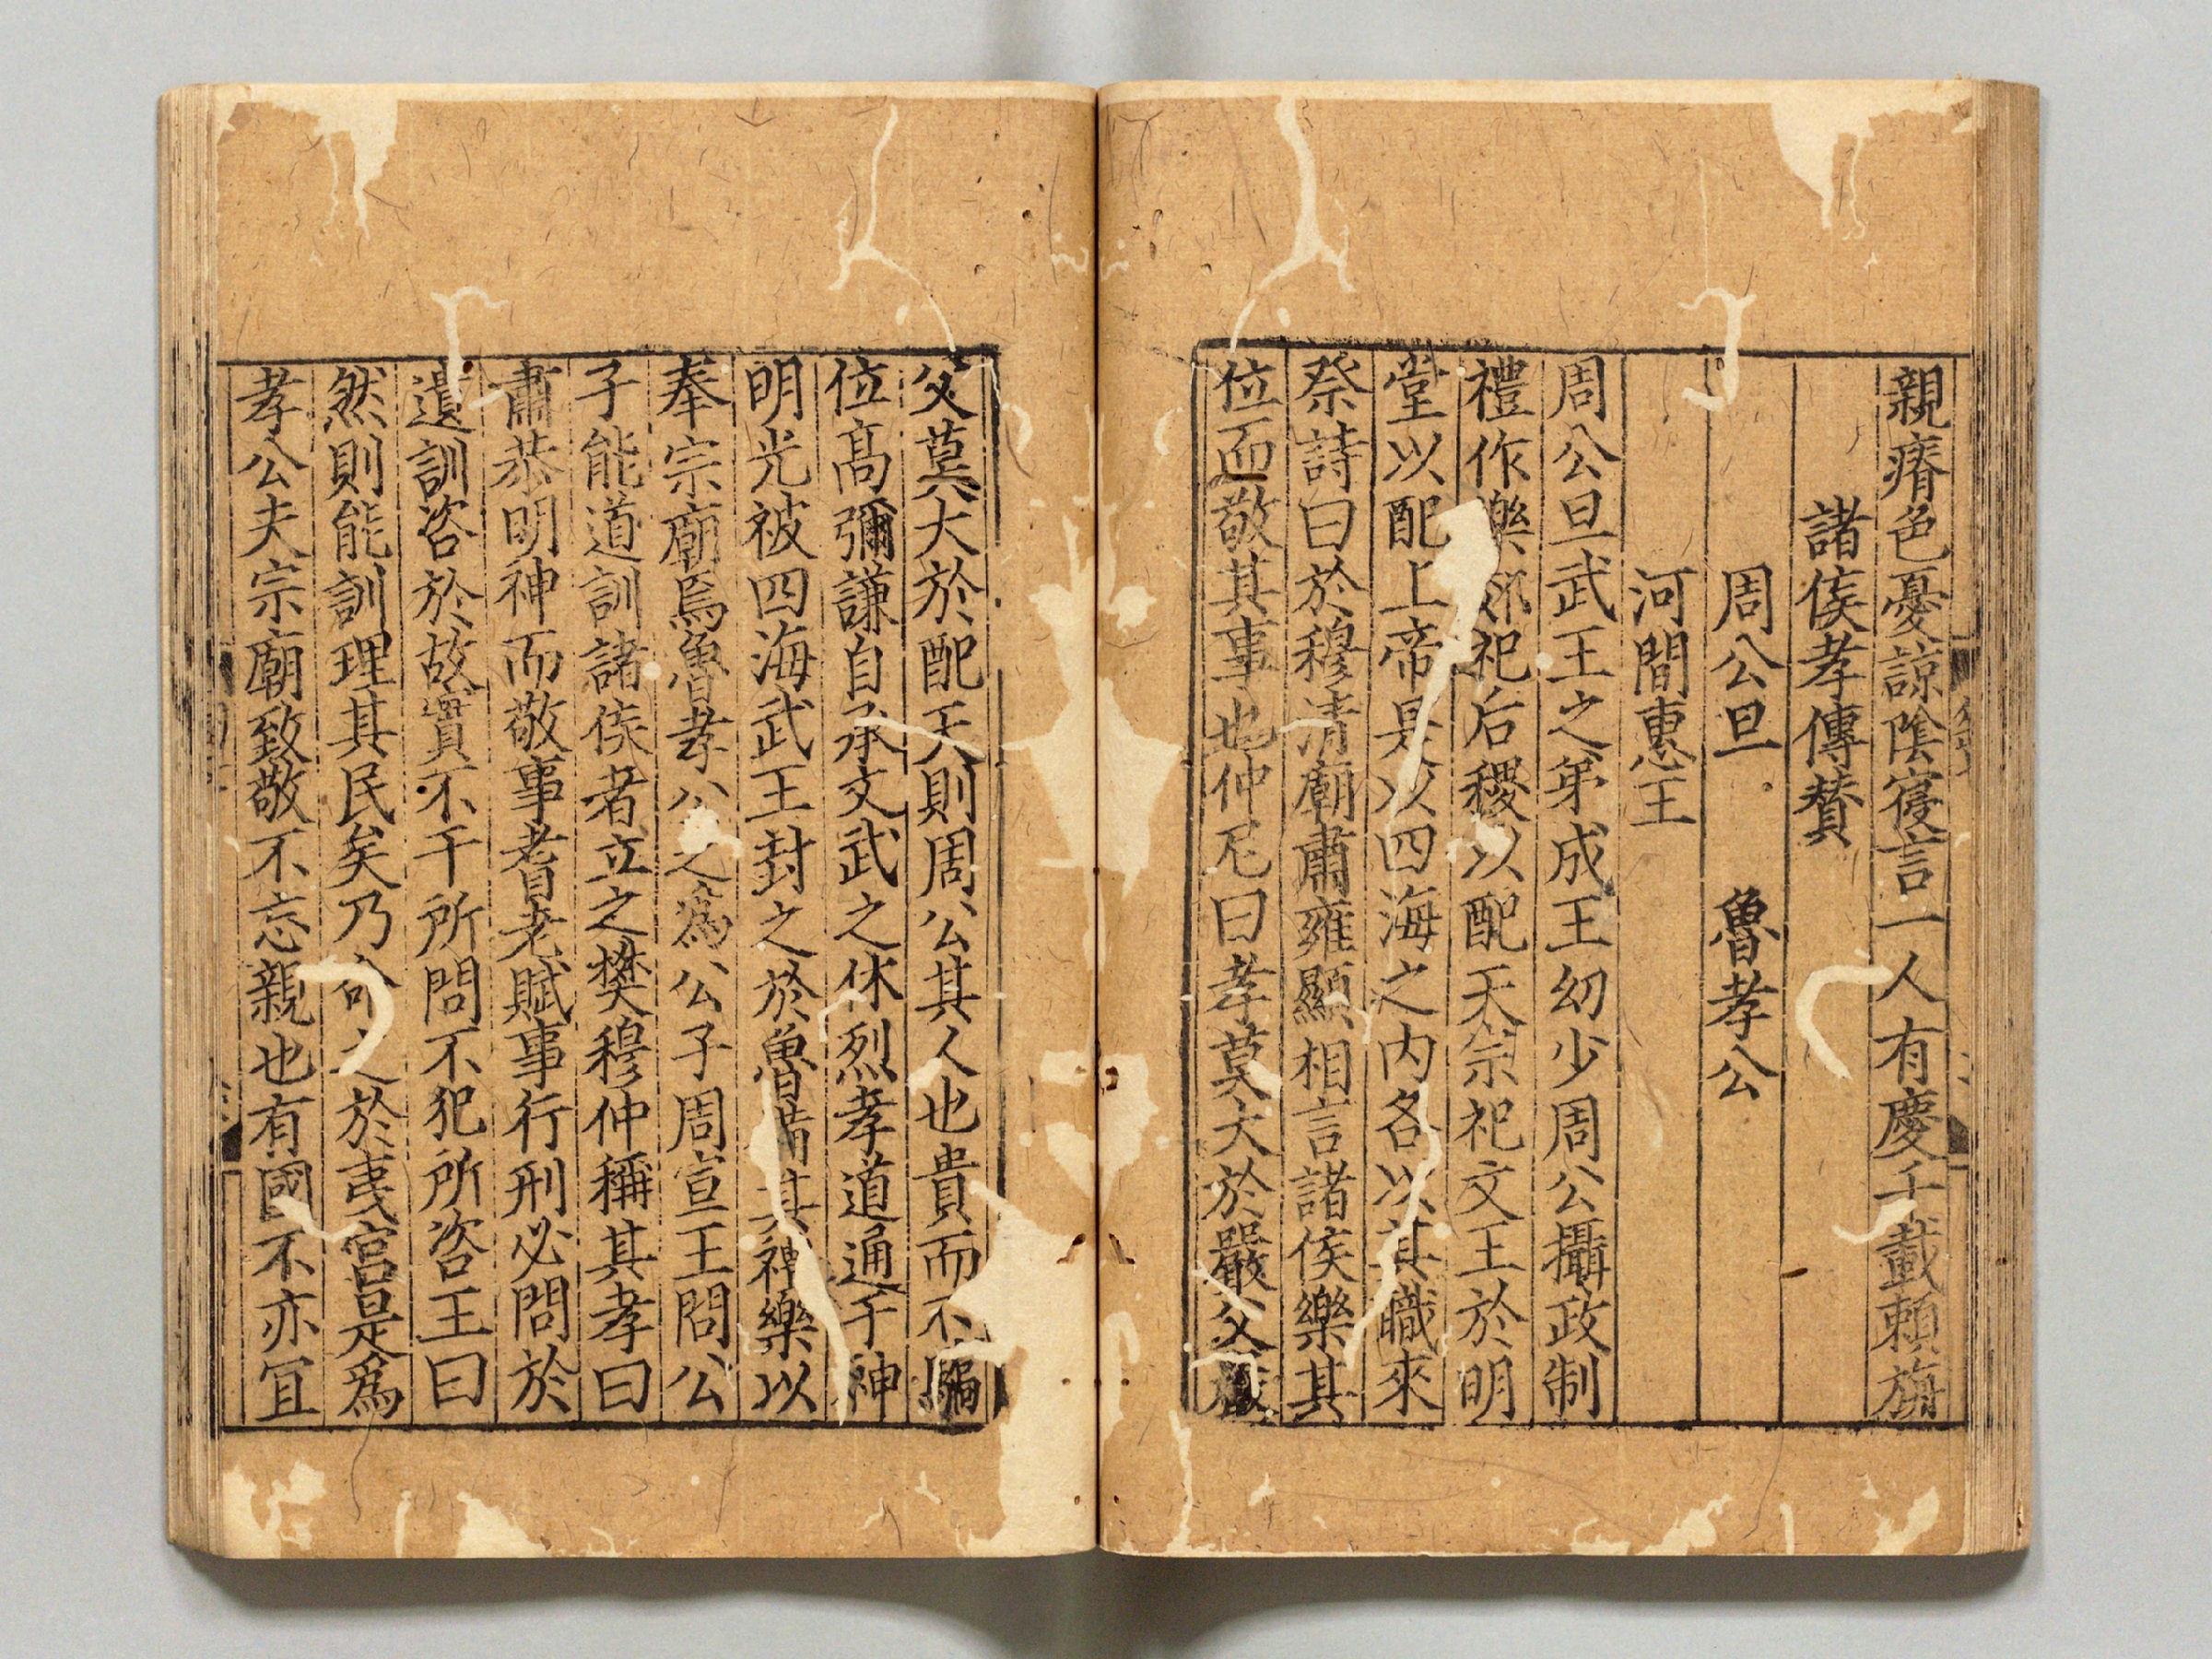 親瘠色憂諒陰寢言一人有慶千載頼旃
諸侯孝傳賛
周公旦 魯孝公
河間惠王
周公旦武王之弟成王幼少周公攝政制
禮作樂郊祀后稷以配天宗祀文王於明
堂以配上帝是以四海之内各以其職來
祭詩曰於穆清廟肅雍顯相言諸侯樂其
位而敬其事也仲尼曰孝莫大於嚴父嚴
父莫大於配天則周公其人也貴而不驕
位髙彌謙自承文武之休烈孝道通于神
明光被四海武王封之於魯備其禮樂以
奉宗廟焉魯孝公之爲公子周宣王問公
子能道訓諸侯者立之樊穆仲稱其孝曰
肅恭明神而敬事耇老賦事行刑必問於
遺訓咨於故實不干所問不犯所咨王曰
然則能訓理其民矣乃命之於夷宮是爲
孝公夫宗廟致敬不忘親也有國不亦冝